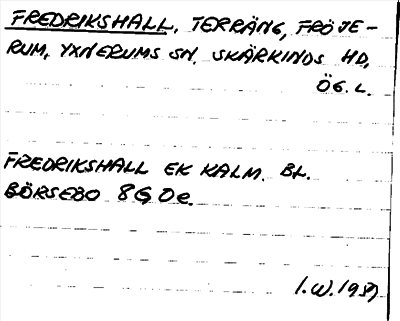 FREDRIKSHALL, TERRÄNG, FRÖJE-
RUM, YXNERUMS SN. SKÄRKINDS HD,
ÖG. L.
FREDRIKSHALL EK KALM. BL.
BÖRSEBO 8G 0e.
I.W.